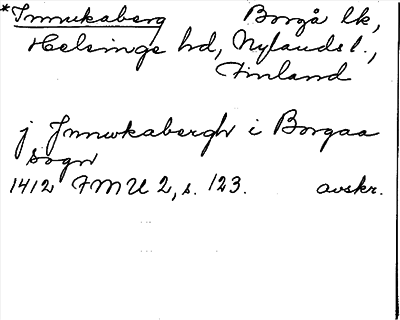 *Innukaberg Borgå lk,
Helsinge hd, Nylands l.,
Finland
j Jnnwkabergh i Borgaa
sogn
1412 FMU 2, s. 123. avskr.